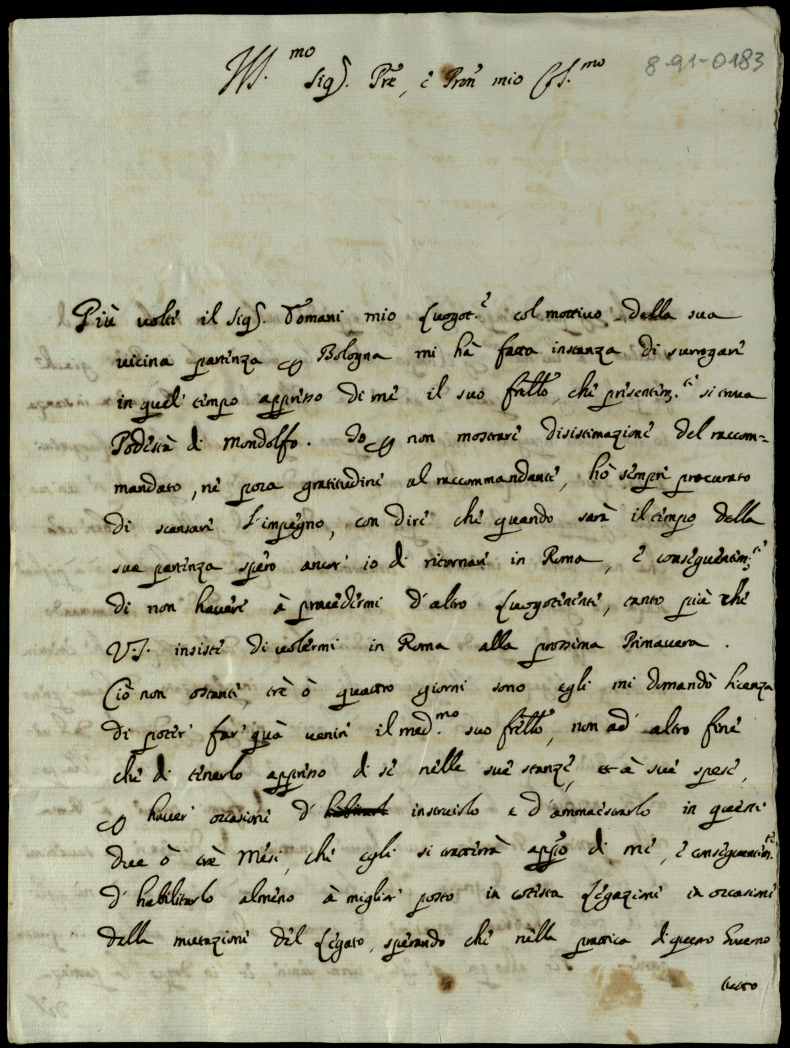 8-91-0183
Ill.mo Sig.r Pre, e Pron mio Col.mo
Più volte il Sig.r Tomani mio Luogot.e col mottivo della sua
vicina partenza p Bologna mi hà fatta instanza di surrogare
in quel tempo appresso di me il suo frello, che presentem.te si trova
Podestà di Mondolfo. Io p non mostrare disistimazione del raccom=
mandato, ne poca gratitudine al raccommandante, hò sempre procurato
di scansare l'impegno, con dire che quando sarà il tempo della
sua partenza spero ancor' io di ritornare in Roma, e conseguentem.te
di non havere à provedermi d'altro Luogotenente, tanto più che
V.S. insiste di volermi in Roma alla prossima Primavera.
Ciò non ostante, trè ò quattro giorni sono egli mi domandò licenza
di poter far quà venire il med.mo suo frello, non ad altro fine
che di tenerlo appresso di se nelle sue stanze, et à sue spese,
p haver occasione d' instruirlo e d'ammaestrarlo in questi
due ò trè Mesi, che egli si tratterrà app.o di me, e conseguentem.te
d'habilitarlo almeno à miglior posto in cotesta Legazione in occasione
della mutazione del Legato, sperando che nella prattica di questo Governo
tutto